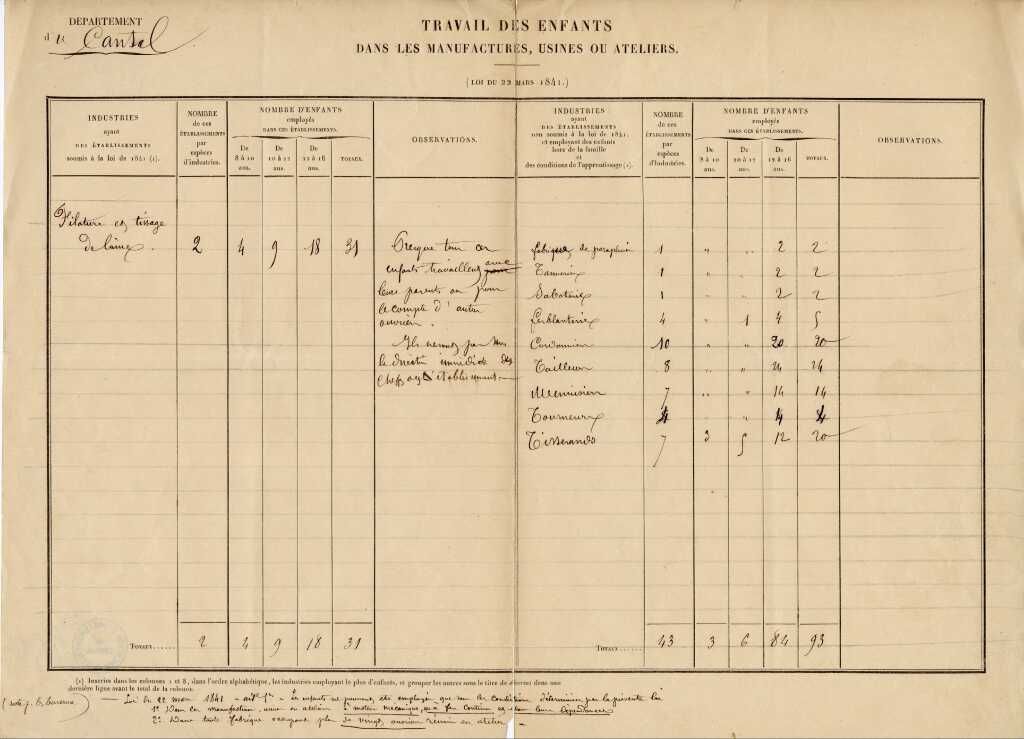 DÉPARTEMENT
du Cantal
TRAVAIL DES ENFANTS
DANS LES MANUFACTURES, USINES OU ATELIERS.
(LOI DU 22 MARS 1841.)
INDUSTRIES
ayant
DES ÉTABLISSEMENTS
soumis à la loi de 1841 (1).
NOMBRE
de ces
ÉTABLISSEMENTS
par
espèces
d'industries.
NOMBRE D'ENFANTS
employés
DANS CES ÉTABLISSEMENTS.
De
8 à 10
ans.
De
10 à 12
ans.
De
12 à 16
ans.
TOTAUX.
OBSERVATIONS.
INDUSTRIES
ayant
DES ÉTABLISSEMENTS
non soumis à la loi de 1841;
et employant des enfants
hors de la famille
et
des conditions de l'apprentissage (1).
NOMBRE
de ces
ÉTABLISSEMENTS
par espèces
d'industries.
NOMBRE D'ENFANTS
employés
DANS CES ÉTABLISSEMENTS.
De
8 à 10
ans.
De
10 à 12
ans.
De
12 à 16
ans.
TOTAUX.
OBSERVATIONS.
Filature et tissage
de laines. 2 4 9 18 31
Presque tous ces
enfants travaillent avec
leurs parents ou pour
le compte d'autres
ouvriers.
Ils ne sont pas sous
la direction immédiate des
chefs d'établissement
fabriques de parapluies 1 " " 2 2
Tanneries 1 " " 2 2
Saboteries 1 " " 2 2
Ferblanteries 4 " 1 4 5
Cordonniers 10 " " 20 20
Tailleurs 8 " " 24 24
Menuisiers 7 " " 14 14
Tourneurs 4 " " 4 4
Tisserands 7 3 5 12 20
TOTAUX...... 2 4 9 18 31
TOTAUX...... 43 3 6 84 93
(1) Inscrire dans les colonnes 1 et 8, dans l'ordre alphabétique, les industries employant le plus d'enfants, et grouper les autres sous le titre de diverses dans une
dernière ligne avant le total de la colonne.
Loi du 22 mars 1841 - art. 1er - Les enfants ne pourront être employés que sous les conditions déterminées par la présente loi
1° Dans les manufactures, usines ou ateliers à moteur mécanique, ou à feu continu et dans leurs dépendances
2° Dans toute fabrique occupant plus de vingt ouvriers réunis en atelier.